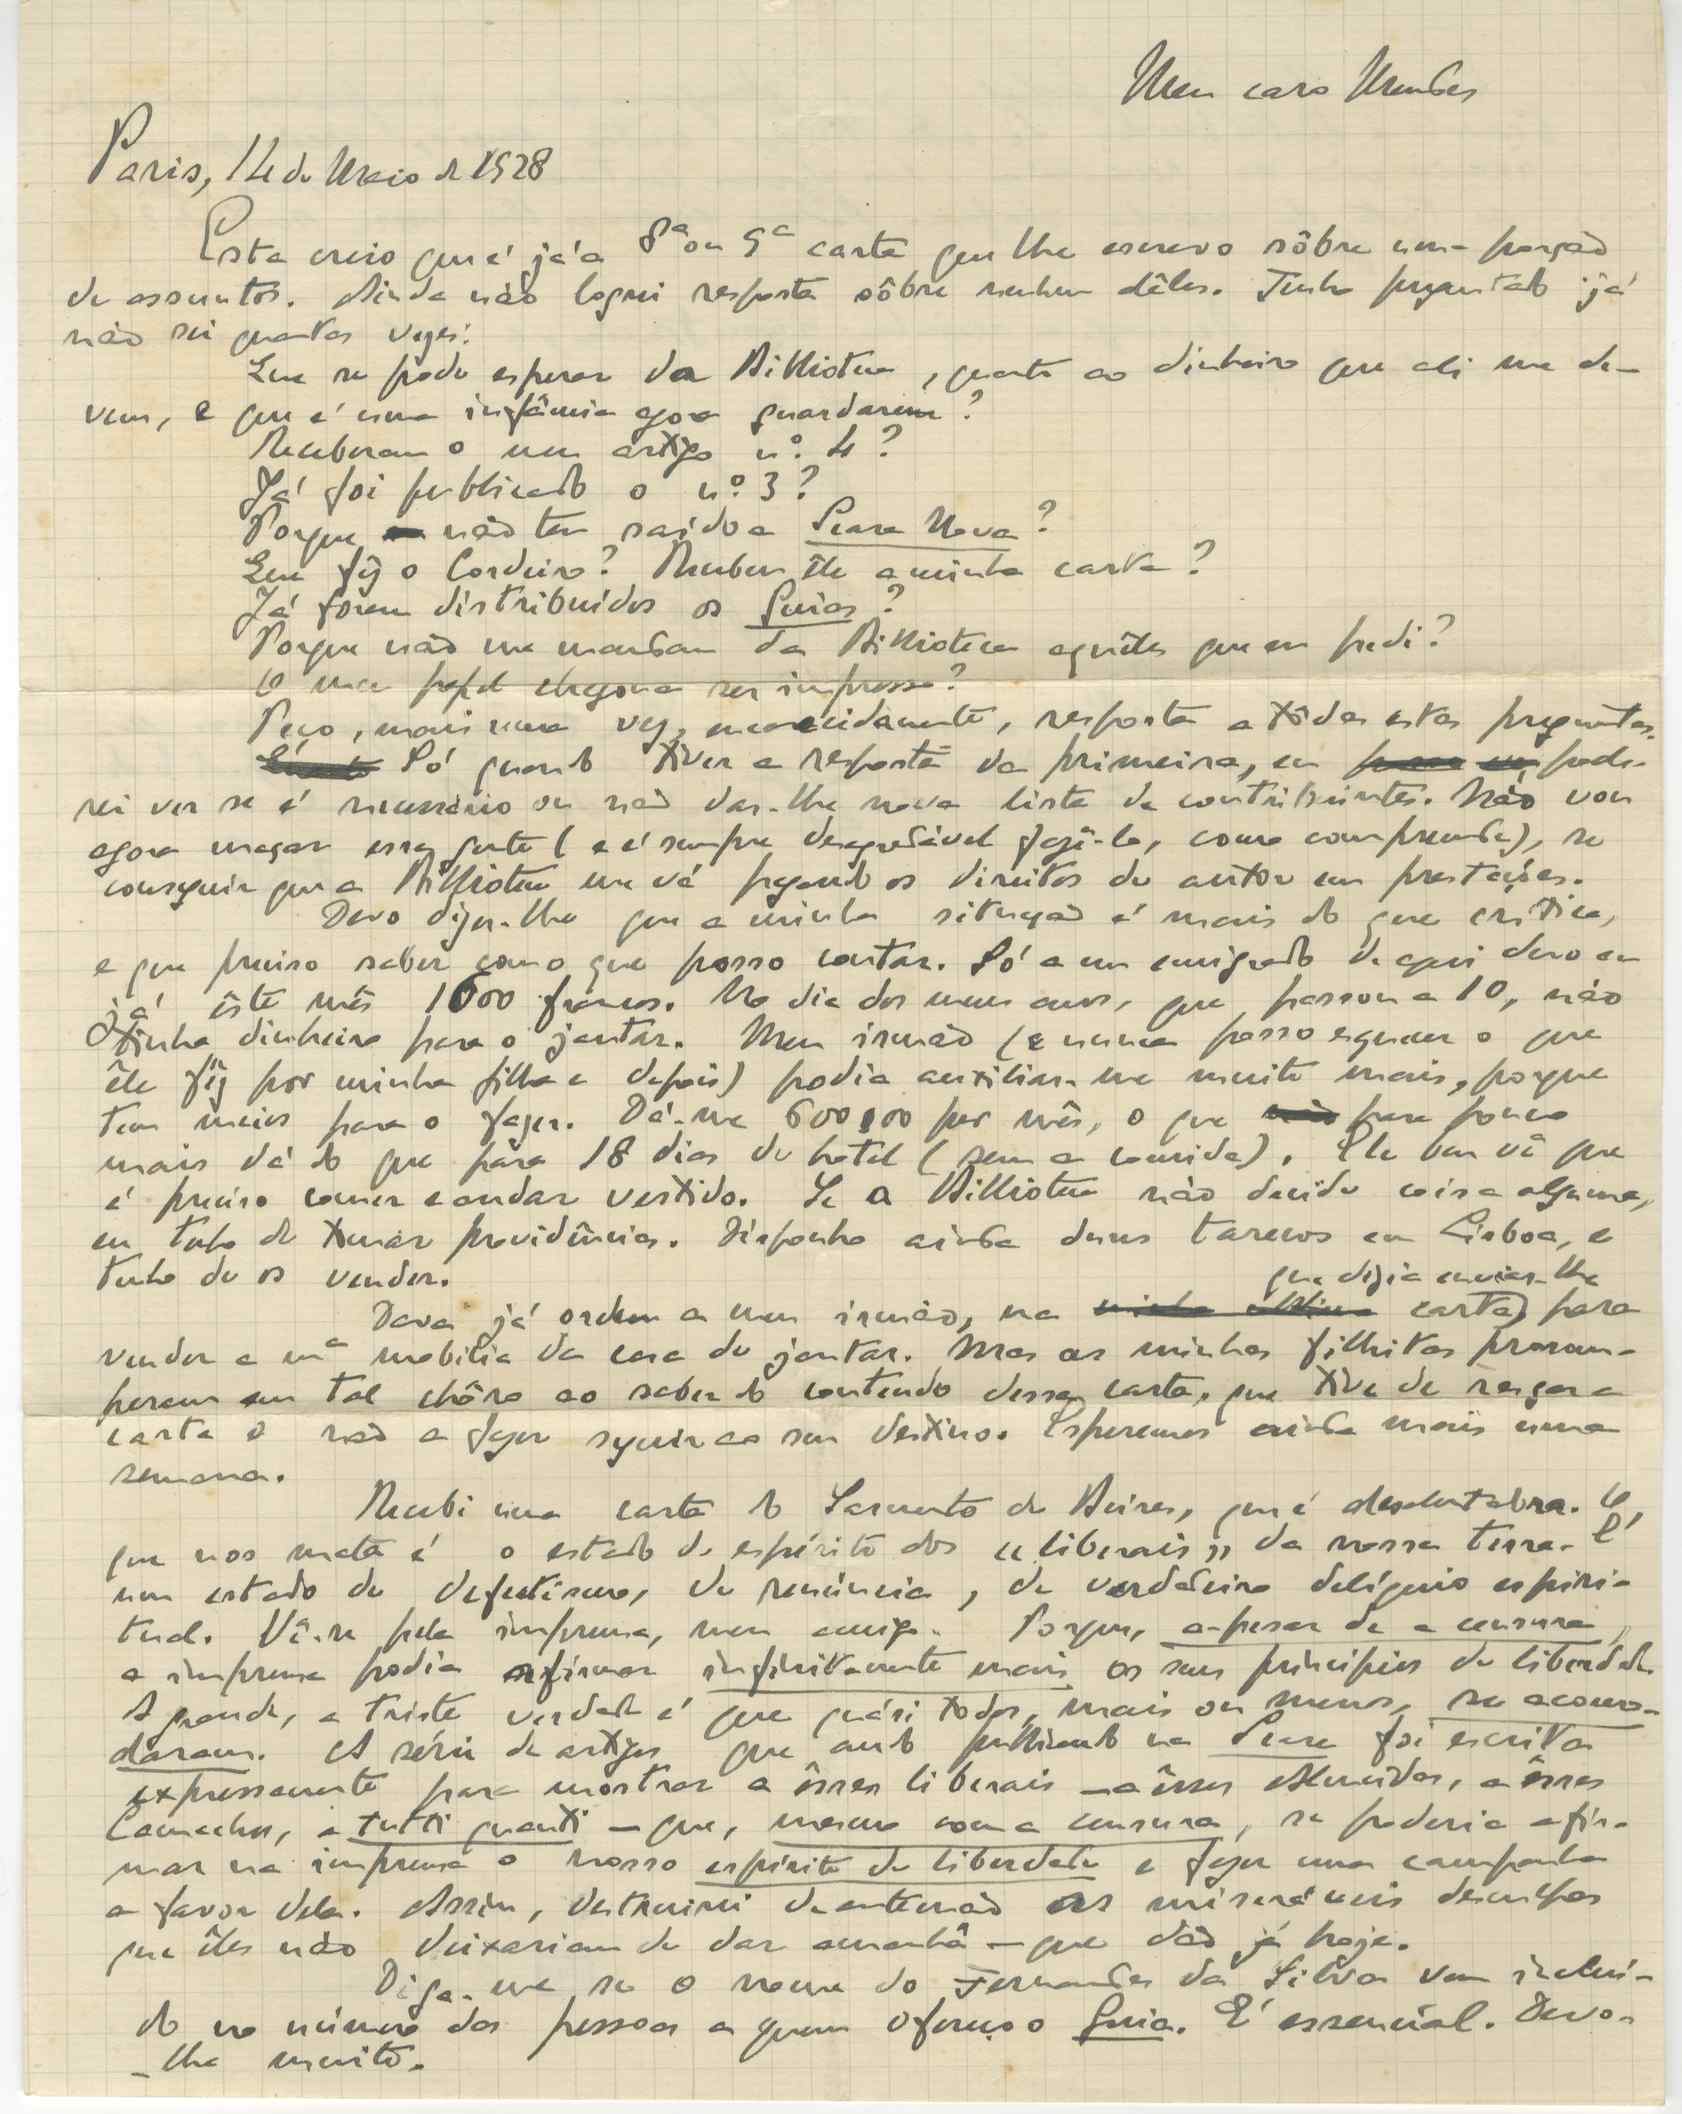 Meu caro Mendes
Paris, 14 de Maio de 1928
Esta creio que é já a 8ª ou 9ª carta que lhe escrevo sôbre uma porção
de assuntos. Ainda não logrei resposta sôbre nenhum dêles. Tenho preguntado já
não sei quantas vezes:
Que se pode esperar da Biblioteca, quanto ao dinheiro que ali me de-
vem, e que é uma infâmia agora guardarem?
Receberam o meu artigo nº 4?
Já foi publicado o nº 3?
Porque não tem saído a Seara Nova?
Que fêz o Cordeiro? Recebeu êle a minha carta?
Já foram distribuidos os Guias?
Porque não me mandam da Biblioteca aquêles que eu pedi?
O meu papel chegou a ser impresso?
Peço, mais uma vez, encarecidamente, resposta a tôdas estas preguntas.
Só quando tiver a resposta da primeira, eu pode-
rei ver se é necessário ou não dar-lhe nova lista de contribuintes. Não vou
agora maçar essa gente (e é sempre desagradável fazê-lo, como compreende), se
conseguir que a Biblioteca me vá pagando os direitos de autor em prestações.
Devo dizer-lhe que a minha situação é mais do que crítica,
e que preciso saber com o que posso contar. Só a um emigrado daqui devo eu
já êste mês 1600 francos. No dia dos meus anos, que passou a 10, não
tinha dinheiro para o jantar. Meu irmão (e nunca posso esquecer o que
êle fêz por minha filha e depois) podia auxiliar-me muito mais, porque
tem meios para o fazer. Dá-me 600$00 por mês, o que para pouco
mais dá do que para 18 dias de hotel (sem a comida). Êle bem vê que
é preciso comer e andar vestido. Se a Biblioteca não decide coisa alguma,
eu tenho de tomar providências. Disponho ainda duns tarecos em Lisboa, e
tenho de os vender.
que dizia enviar-lhe
Dava já ordem a meu irmão, na carta, para
vender a mª mobília da casa de jantar. Mas as minhas filhitas prorom-
peram em tal chôro ao saber do conteúdo dessa carta, que tive de rasgar a
carta e não a fazer seguir ao seu destino. Esperemos ainda mais uma
semana.
Recebi uma carta do Sarmento de Beires, que é desalentadora. O
que nos mata é o estado de espírito dos "liberais" da nossa terra. É
um estado de defetismo, de renúncia, de verdadeiro delíquio espiri-
tual. Vê-se pela imprensa, meu amigo. Porque, apesar de a censura,
a imprensa podia afirmar infinitamente mais os seus princípios de liberdade.
A grande, a triste verdade é que quási todos, mais ou menos, se acomo-
daram. A série de artigos que ando publicando na Seara foi escrita
expressamente para mostrar a êsses liberais — a êsses Almeidas, a êsses
Camachos, a tutti quanti — que, mesmo com a censura, se poderia afir-
mar na imprensa o nosso espírito de liberdade e fazer uma campanha
a favor dela. Assim, destruirei de antemão as miseráveis desculpas
que êles não deixariam de dar amanhã — que dão já hoje.
Diga-me se o nome do Fernandes da Silva vem incluí-
do no número das pessoas a quem ofereço o Guia. É essencial. Devo-
-lhe muito.